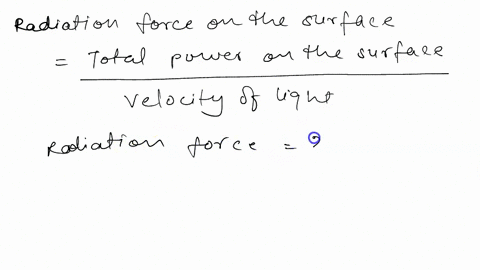 Radiation force on the surface
= Total power on the surface
velocity of light
Radiation force =